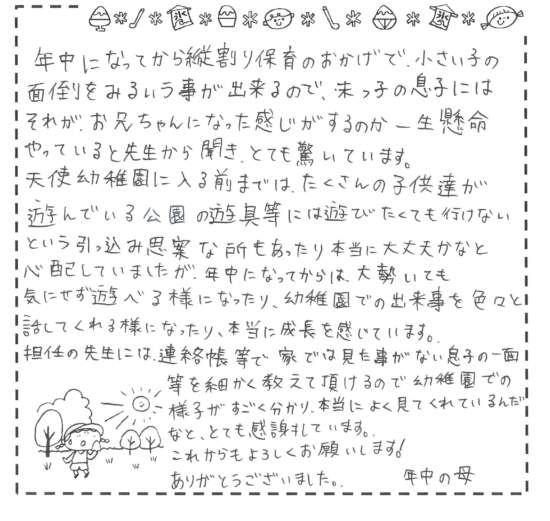 年中になってから縦割り保育のおかげで、小さい子の
面倒をみるいう事が出来るので、末っ子の息子には
それが、お兄ちゃんになった感じがするのか一生懸命
やっていると先生から聞き、とても驚いています。
天使幼稚園に入る前までは、たくさんの子供達が
遊んでいる公園の遊具等には遊びたくても行けない
という引っ込み思案な所もあったり本当に大丈夫かなと
心配していましたが、年中になってからは、大勢いても
気にせず遊べる様になったり、幼稚園での出来事を色々と
話してくれる様になったり、本当に成長を感じています。
担任の先生には、連絡帳等で家では見た事がない息子の一面
等を細かく教えて頂けるので幼稚園での
様子がすごく分かり、本当によく見てくれているんだ
なと、とても感謝しています。
これからもよろしくお願いします!
ありがとうございました。 年中の母